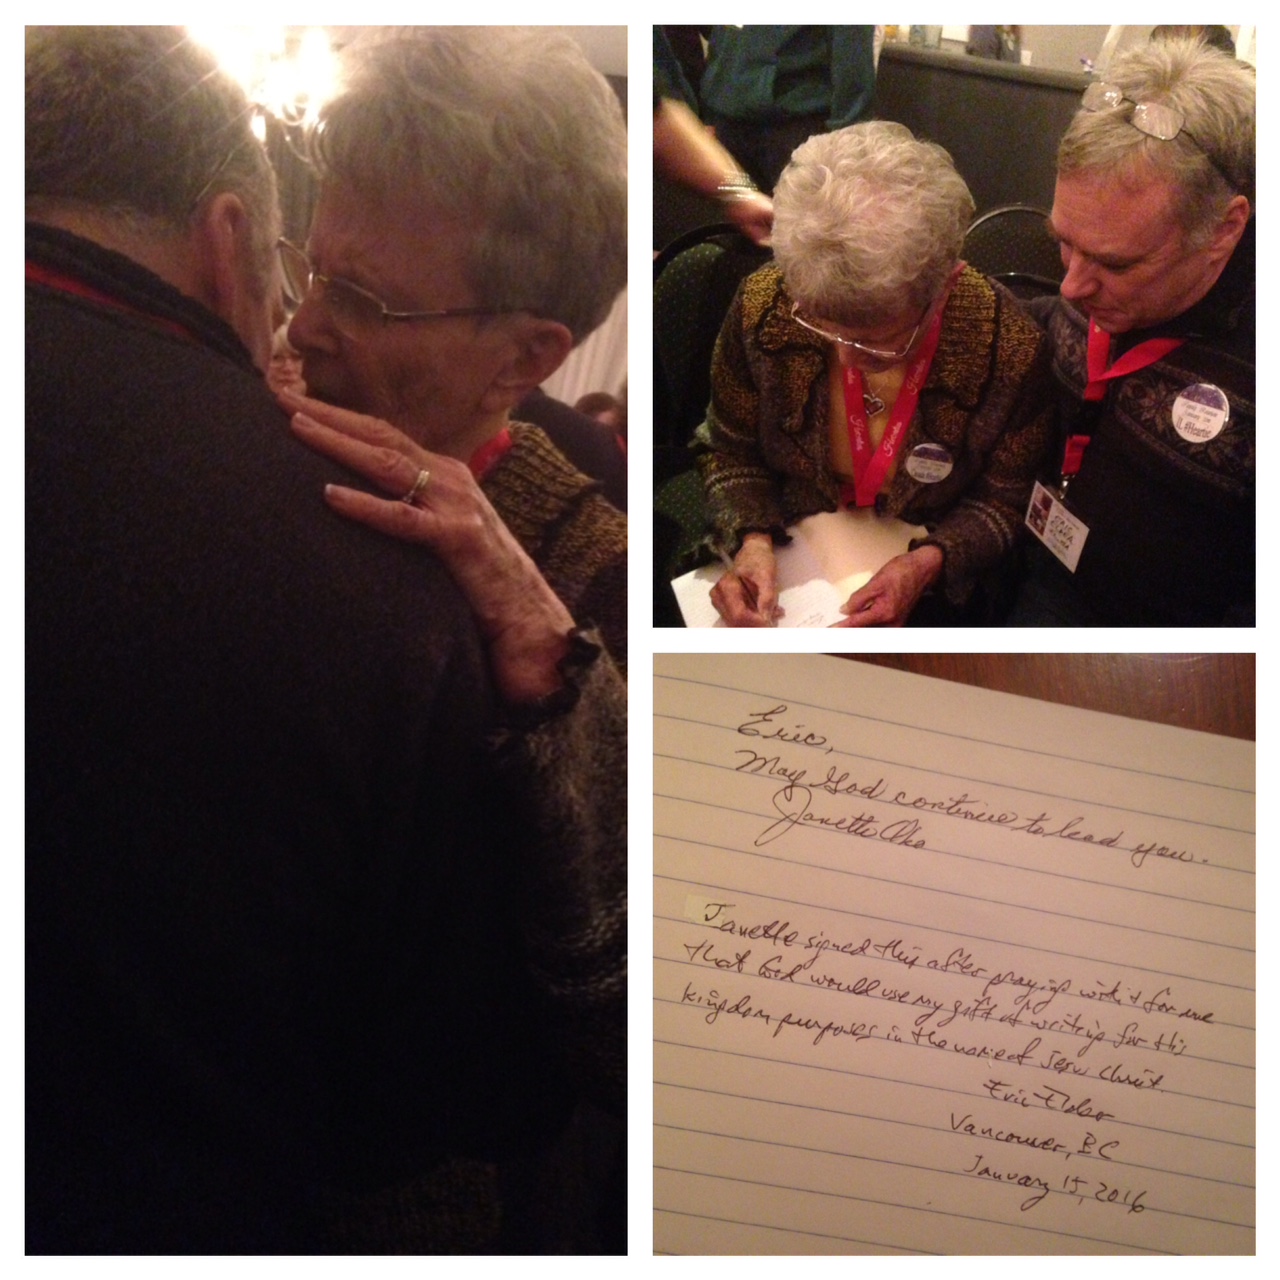 Hearties
Hearties
#Hearties
ERIC
Eric,
May God continue to lead you.
Janette Oke
Janette signed this after praying with & for me
that God would use my gift of writing for His
kingdom purposes in the name of Jesus Christ.
Eric Elder
Vancouver, BC
January 15, 2016